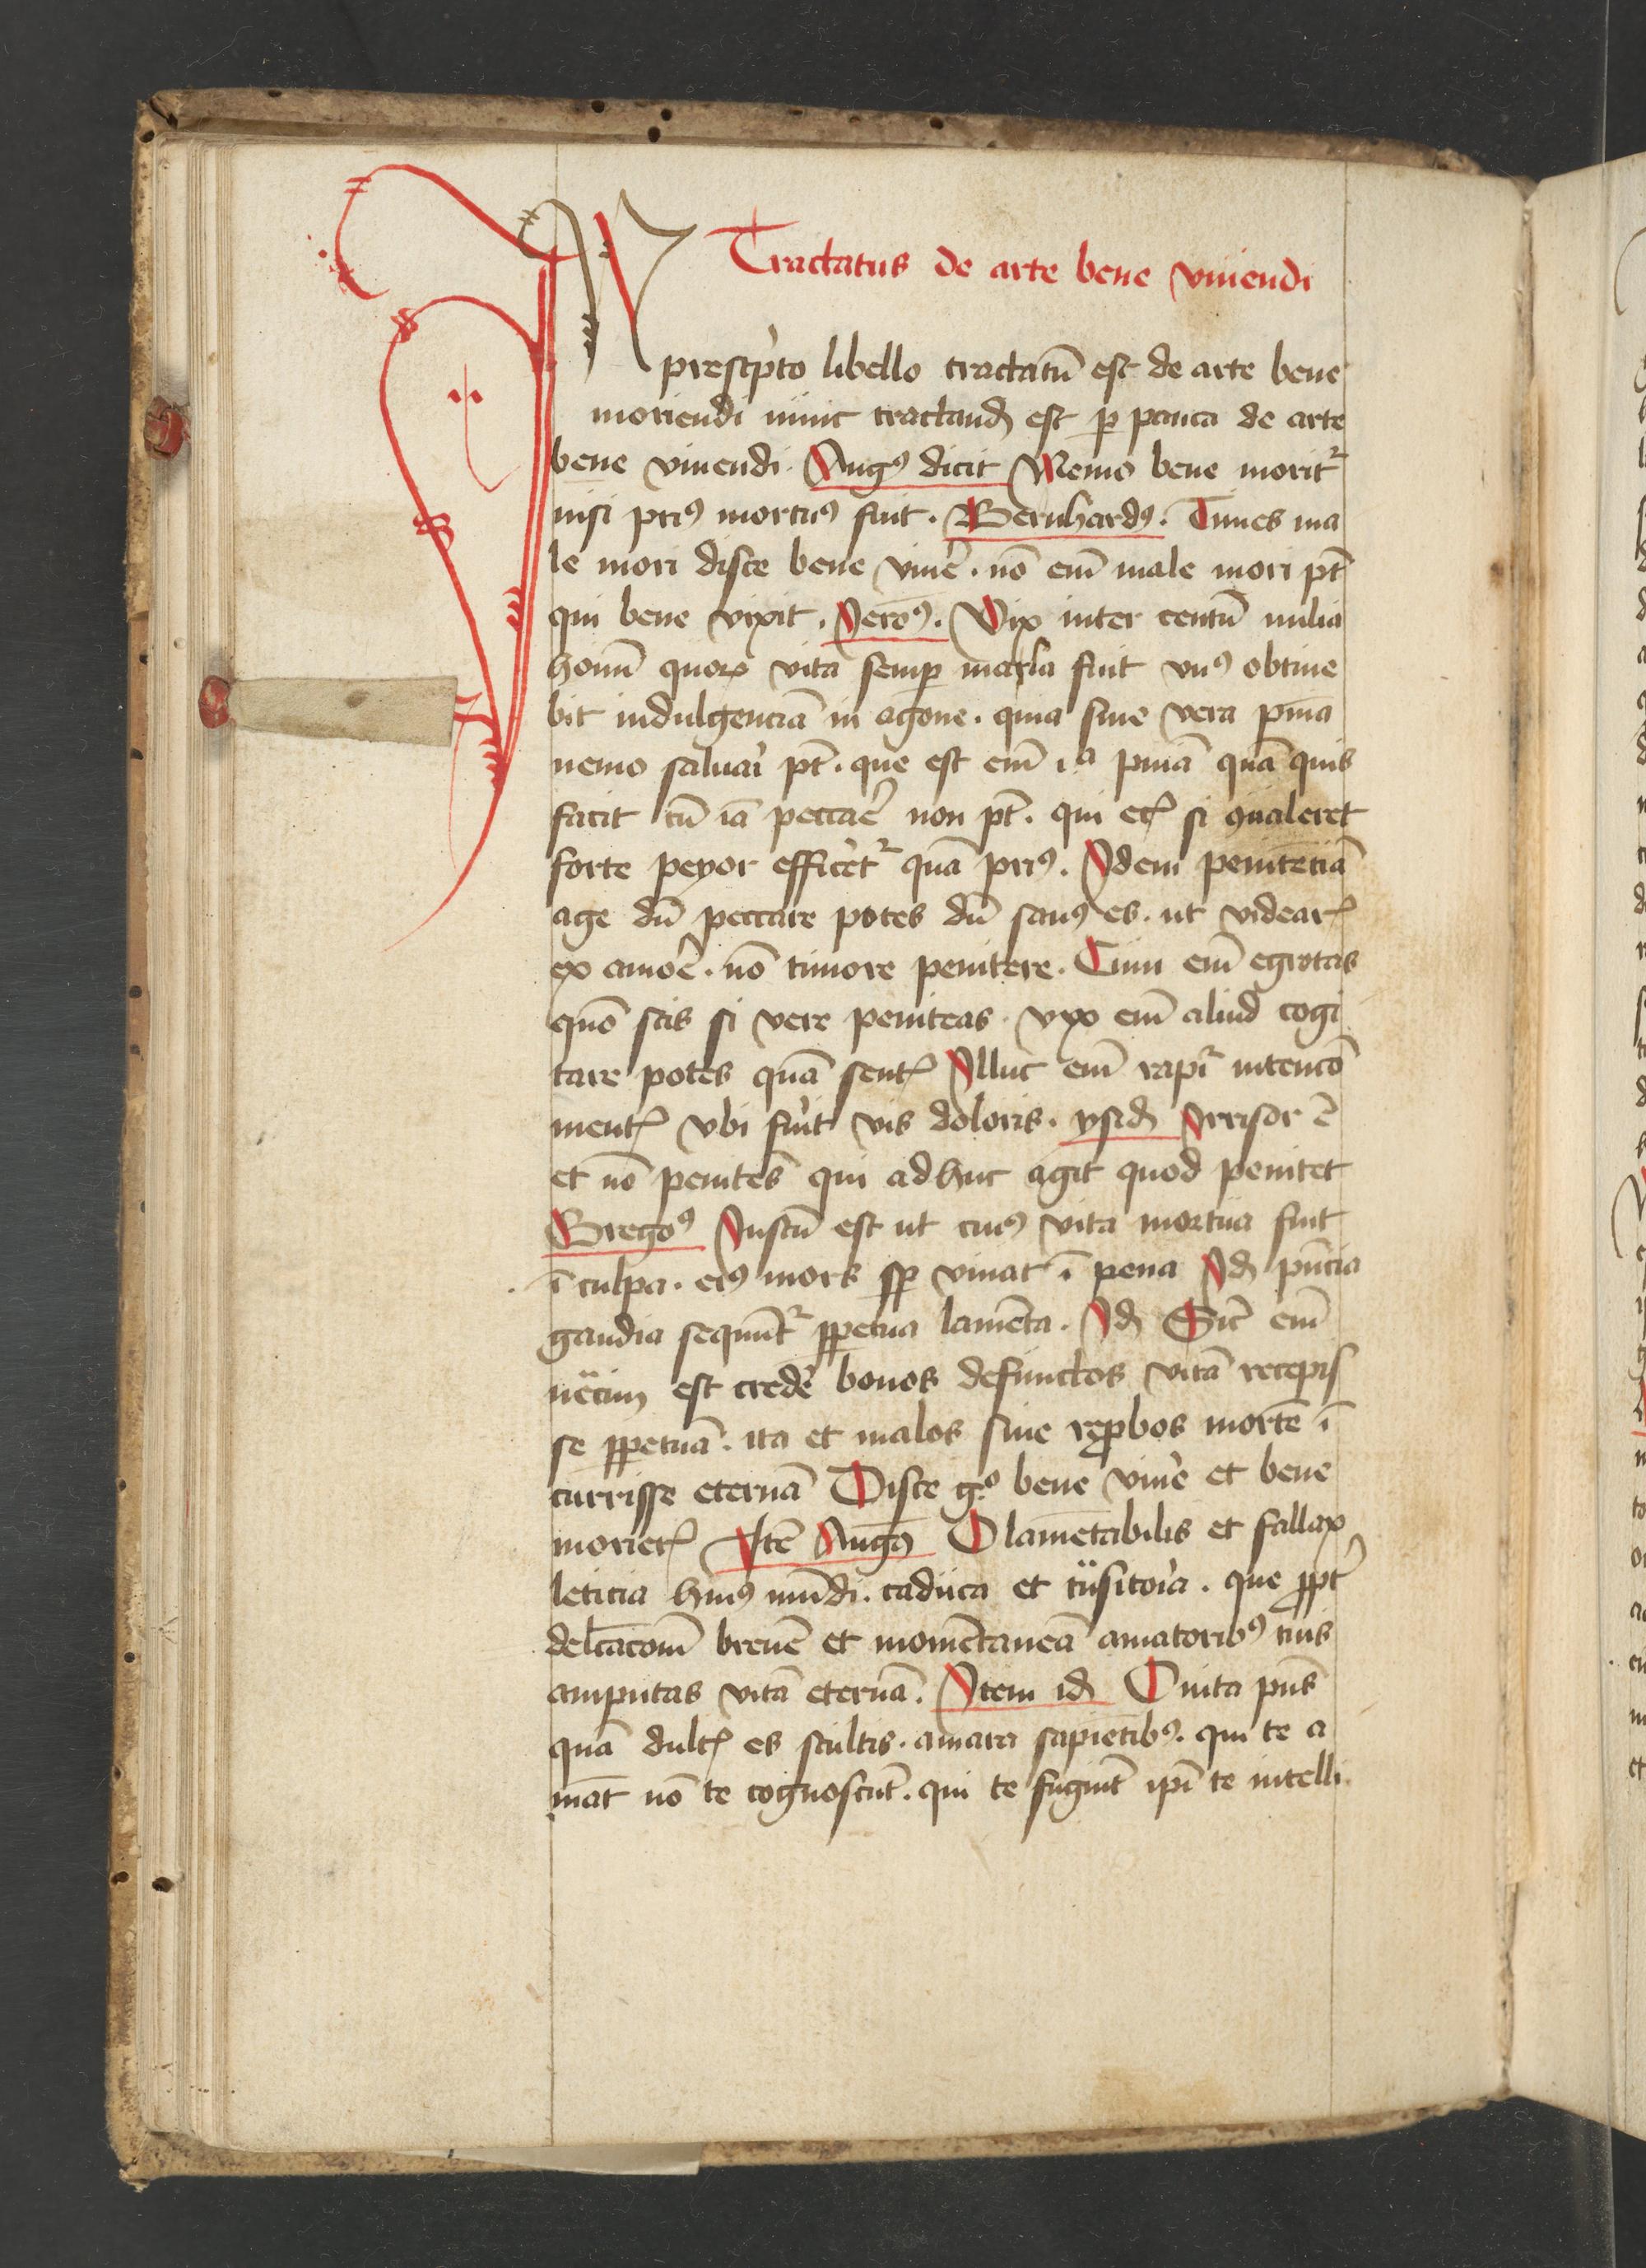 Tractatus de arte bene viuendi
IN prescpto libello tractatū est de arte bene
moriendi nunc tractand est p pauca de arte
bene viuendi. Augꝰ dicit Nemo bene morit᷑
nisi priꝰ mortuꝰ fuit. Bernhardꝰ. Times ma
le mori disce bene viuē. nō em̄ male mori pt̄
qui bene vixit. Jeroꝰ. Vix inter centū milia
homī quoꝝ vita semꝑ mala fuit vnꝰ obtine
bit indulgenciā in agone. quia sine vera pnīa
nemo saluari pt̄. que est em̄ pniā quā quis
facit cū iā peccaē non pt̄. qui etꝭ si ꝯualeret
forte peyor efficet᷑ quā priꝰ. Idem penitētiā
age dū peccare potes dū sanꝰ es. ut videarꝭ
ex amoē. nō timore penitere. Cum em̄ egrotas
quō scis si vere peniteas. vix em̄ aliud cogi
tare potes quā sentꝭ Illuc em̄ rapit᷑ intencō
mentꝭ vbi fuit vis doloris. ysid Irrisor ē
et nō penitēs qui adhuc agit quod penitet
Gregoꝰ Iustū est ut cuiꝰ vita mortua fuit
ī culpa. eiꝰ mors sꝑ viuat ī pena Id pn̄cia
gaudia sequūt᷑ ꝑpetua lamēta. Id Sic̄ em̄
necīm est credē bonos defunctos vitā recepis
se ꝑpetuā. ita et malos siue reꝓbos mortē ī
currisse eternā Disce gͦ bene viuē et bene
morierꝭ Itē Augꝰ O lamētabilis et fallax
leticia huiꝰ mūdi. caduca et t̄nsitoria. que ꝓpt̄
delc̄acōm breuē et momētaneā amatoribꝰ tuis
amputas vitā eternā. Item id O uita pn̄s
quā dulcꝭ es stultis. amara sapiētibꝰ. qui te a
māt nō te cognoscūt. qui te fugiūt ip̄i te intelli